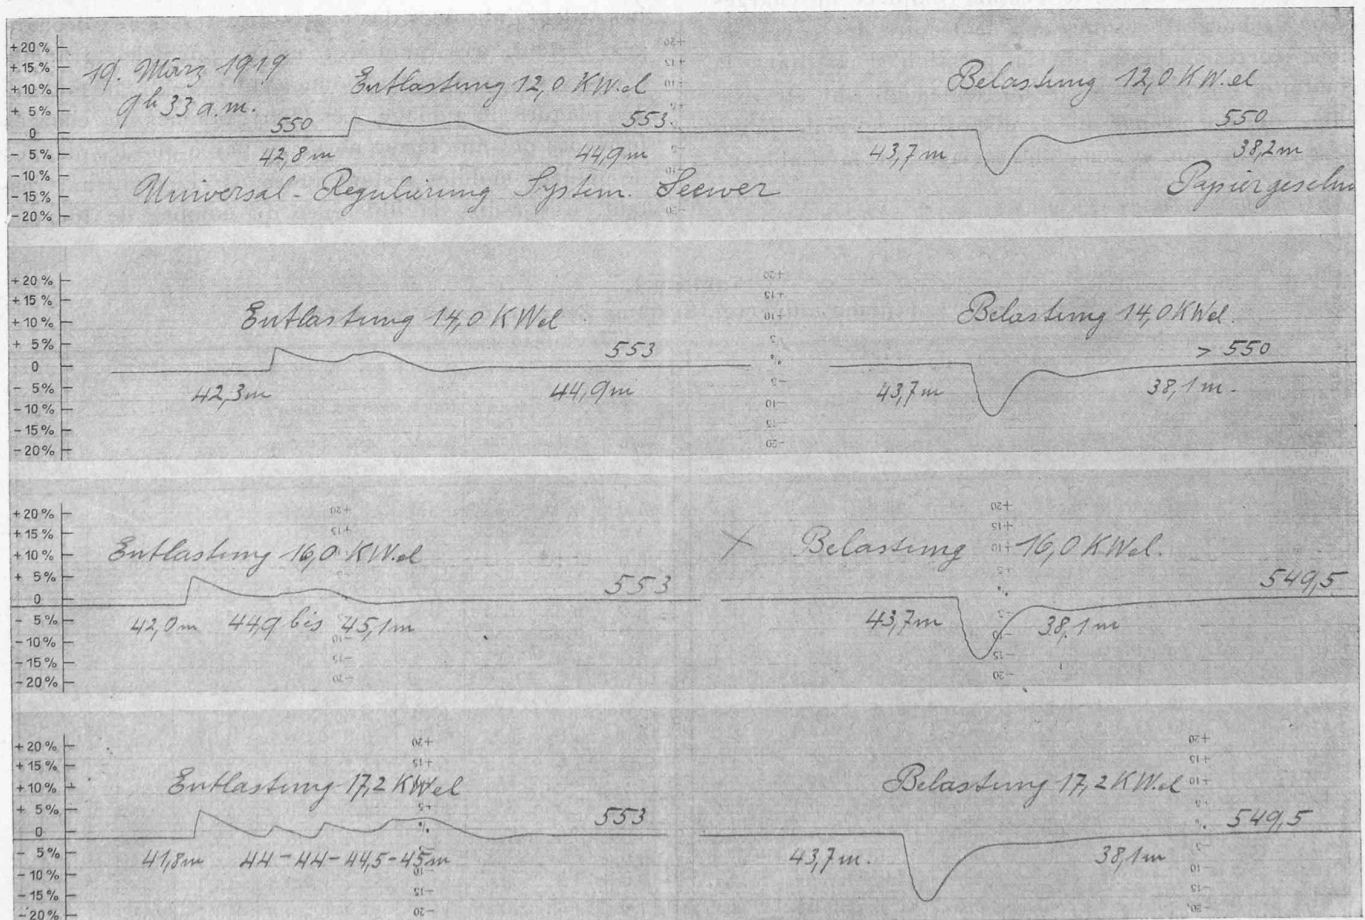 +20%
+15%
+10%
+ 5%
0
- 5%
-10%
-15%
-20%
19. März 1919
9h 33 a.m.
Entlastung 12,0 KW.el
550
553.
42,8m
44,9m
Universal-Regulierung System. Seewer
Belastung 12,0 KW.el
550
43,7m
38,2m
Papiergeschw
+20%
+15%
+10%
+ 5%
0
- 5%
-10%
-15%
-20%
Entlastung 14,0 KWel
553
42,3m
44,9m
Belastung 14,0 KWel.
> 550
43,7m
38,1m.
+20%
+15%
+10%
+ 5%
0
- 5%
-10%
-15%
-20%
Entlastung 16,0 KW.el
553
42,0m 44,9 bis 45,1m
X Belastung 16,0 KWel.
549,5
43,7m
38,1m
+20%
+15%
+10%
+ 5%
0
- 5%
-10%
-15%
-20%
Entlastung 17,2 KWel
553
41,8m 44-44-44,5-45m
Belastung 17,2 KW.el
549,5
43,7m.
38,1m